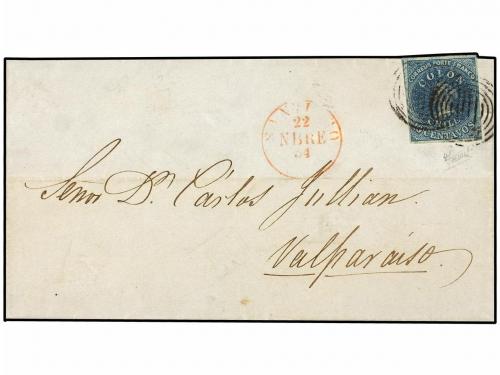 CORREOS PORTE FRANCO
COLON
CHILE
CENTAVOS
22
NBRE
54
Señor Dn. Cárlos Jullian.
Valparaiso.